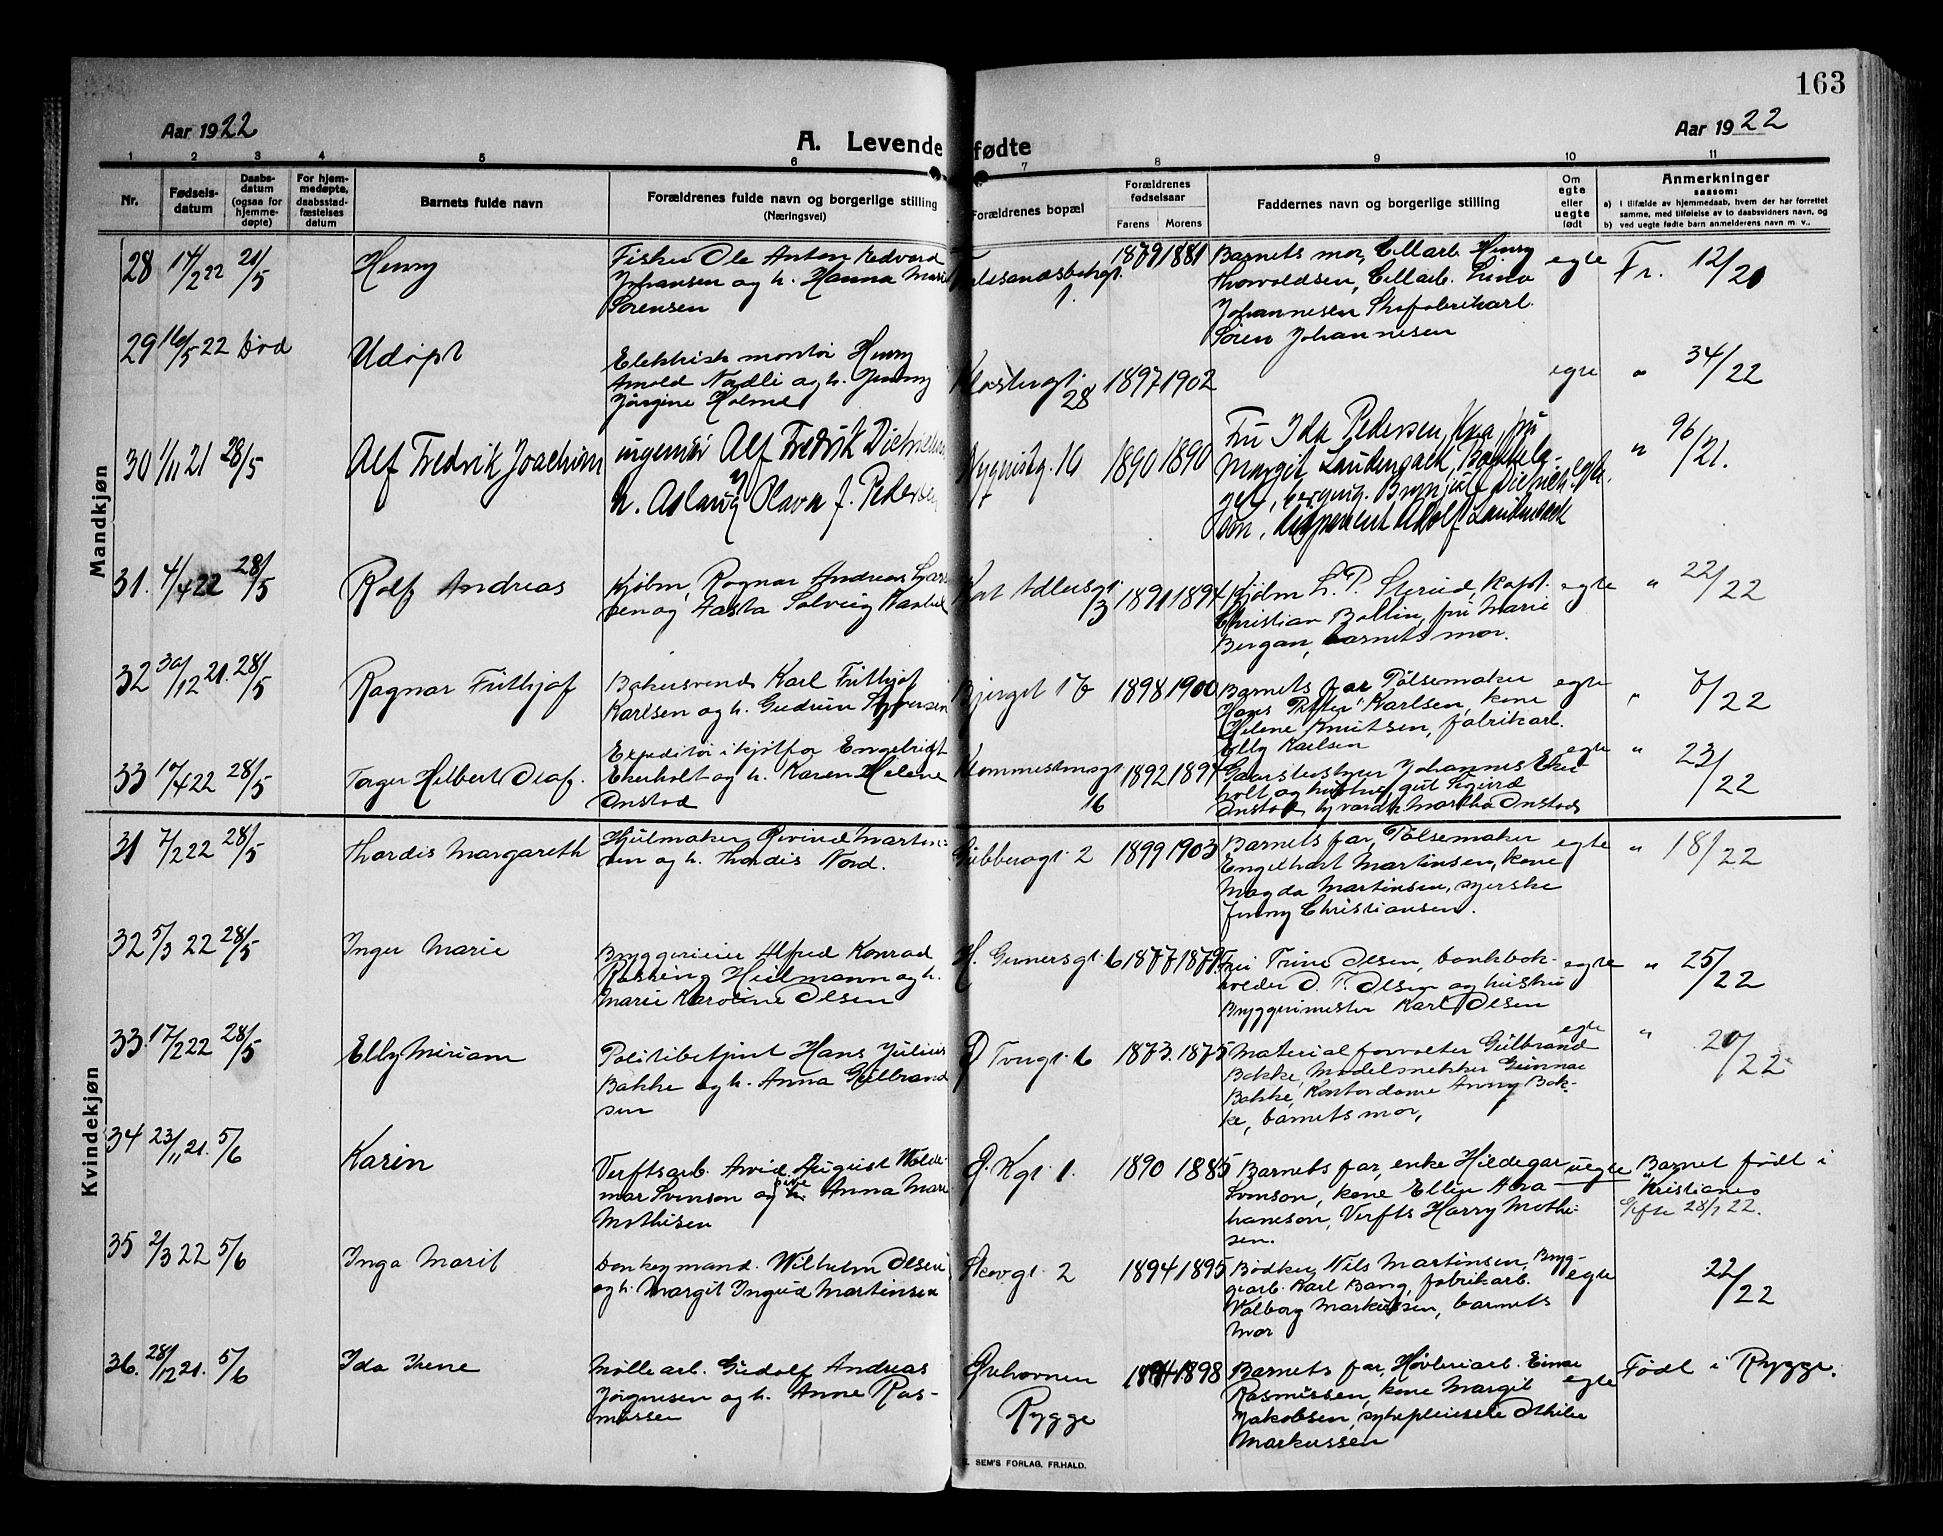 163
Aar 1922
A. Levende fødte
Aar 1922
1 2 3 4 5 6 7 8 9 10 11
Nr.
Fødsels-
datum
Daabs-
datum
(ogsaa for
hjemme-
døpte)
For hjem-
medøpte,
daabsstad-
fæstelses
datum
Barnets fulde navn
Forældrenes fulde navn og borgerlige stilling
(Næringsvei)
Forældrenes bopæl
Forældrenes
fødselsaar
Farens Morens
Faddernes navn og borgerlige stilling
Om
egte
eller
uegte
født
Anmerkninger
saasom:
a) i tilfælde av hjemmedaab, hvem der har forrettet
samme, med tilføielse av to daabsvidners navn, og
b) ved uegte fødte barn anmelderens navn m. v..
Mandkjøn
28 17/2 22 21/5 Henry
Fisker Ole Anton Edvard
Johansen og h. Hanna Marie
Sørensen
1.
1879 1881
Barnets mor, Cellarb. Henry
Thorvaldsen, Cellarb.
Johannesen Skofabrikarb.
Søren Johannesen
egte Fr. 12/20
29 16/5 22 Død Udøpt
Elektrisk montør Henry
Arnold Nødli og h. Jenny
Jørgine Holme
Klostergt.
28
1897 1902
egte " 34/22
30 1/11 21 28/5 Alf Fredrik Joachim
ingeniør Alf Fredrik Dietrichson
h. Aslaug Olava f. Pedersen
Nygaardsg. 10
1890 1890
Fru Ida Pedersen, fru
Margit Laudengack,
disponent Adolf Laudengack
" 96/21.
31. 4/4 22 28/5 Rolf Andreas
Kjøbm. Ragnar Andreas Lar-
sen og Aasta Solveig
Kort Adlersgt.
3
1891 1894
Kjøbm L. P. Sterud, kapt.
Christian Bollin, fru Marie
Bergan, barnets mor.
egte " 22/22
32 30/12 21. 28/5 Ragnar Frithjof
Bakersvend Karl Frithjof
Karlsen og h. Gudrun Syversen
Bjerget 17b
1898 1900
Barnets far Pølsemaker
Hans Petter Karlsen, kone
Helene Knutsen, fabrikarb.
Elly Karlsen
egte " 6/22
33 17/4 22 28/5 Torger Hilbert Olaf.
Expeditør i kjøtfor Engebrigt
Ekerholt og h. Karen Helene
Onstad
16
1892 1897
Gaardbestyrer Johannes Eke-
holt og hustru, gut Sigurd
Onstad, Martha Onstad
egte " 23/22
Kvindekjøn
31 7/2 22 28/5 Thordis Margareth
Hjulmaker Øivind Martin-
sen og h. Thordis Nord.
Gubberogt. 2
1899 1903
Barnets far, Pølsemaker
Engelhart Martinsen, kone
Magda Martinsen, syerske
Jenny Christiansen.
egte " 18/22
32 5/3 22 28/5 Inger Marie
Bryggerieier Alfred Konrad
Heilmann og h.
Marie Karoline Olsen
H. Gernersgt. 6
1877 1879
Fru Trine Olsen, bankbok-
holder O. T. Olsen og hustru
Bryggerimester Karl Olsen
egte " 25/22
33. 17/2 22 28/5 Elly Miriam
Politibetjent Hans Julius
Bakke og h. Anna Gulbrand
sen
D Tvergt. 6
1873. 1875
Materialforvalter Gulbrand
Bakke, Modelsnekker Gunnar
Bakke, Kontordame Anny Bak-
ke, barnets mor,
egte " 20/22
34 23/11 21. 5/6 Karin
Verftsarb. Arvid August Wolde-
mar Svenson og pike Anna Marie
Mathisen
Ø. Kgt. 1.
1890 1885
Barnets far, enke Hildegar
Svenson, kone Ellen Abra-
hamson, Verfts Harry Mathi-
sen.
uegte
Barnet født i
Kristiania
Gifte 28/1 22.
35 2/3 22 5/6 Inga Marit
Donkeymand. Wilhelm Olsen
og h. Margit Ingrid Martinsen
Skovgt. 2
1894 1895
Bødker Nils Martinsen, Bryg-
giarb. Karl Bang, fabrikarb.
Valborg Markussen, barnets
mor
egte 22/22
36. 28/12 21. 5/6 Ida Irene
Møllearb. Gudolf Andreas
Jørgensen og h. Anne Ras-
mussen
Ørehavnen
Rygge
1894 1898
Barnets far, Høvleriarb. Einar
Rasmussen, kone Margit
Jakobsen, sykepleierske Othilie
Markussen
egte Født i Rygge.
E. SEM'S FORLAG, FR.HALD.